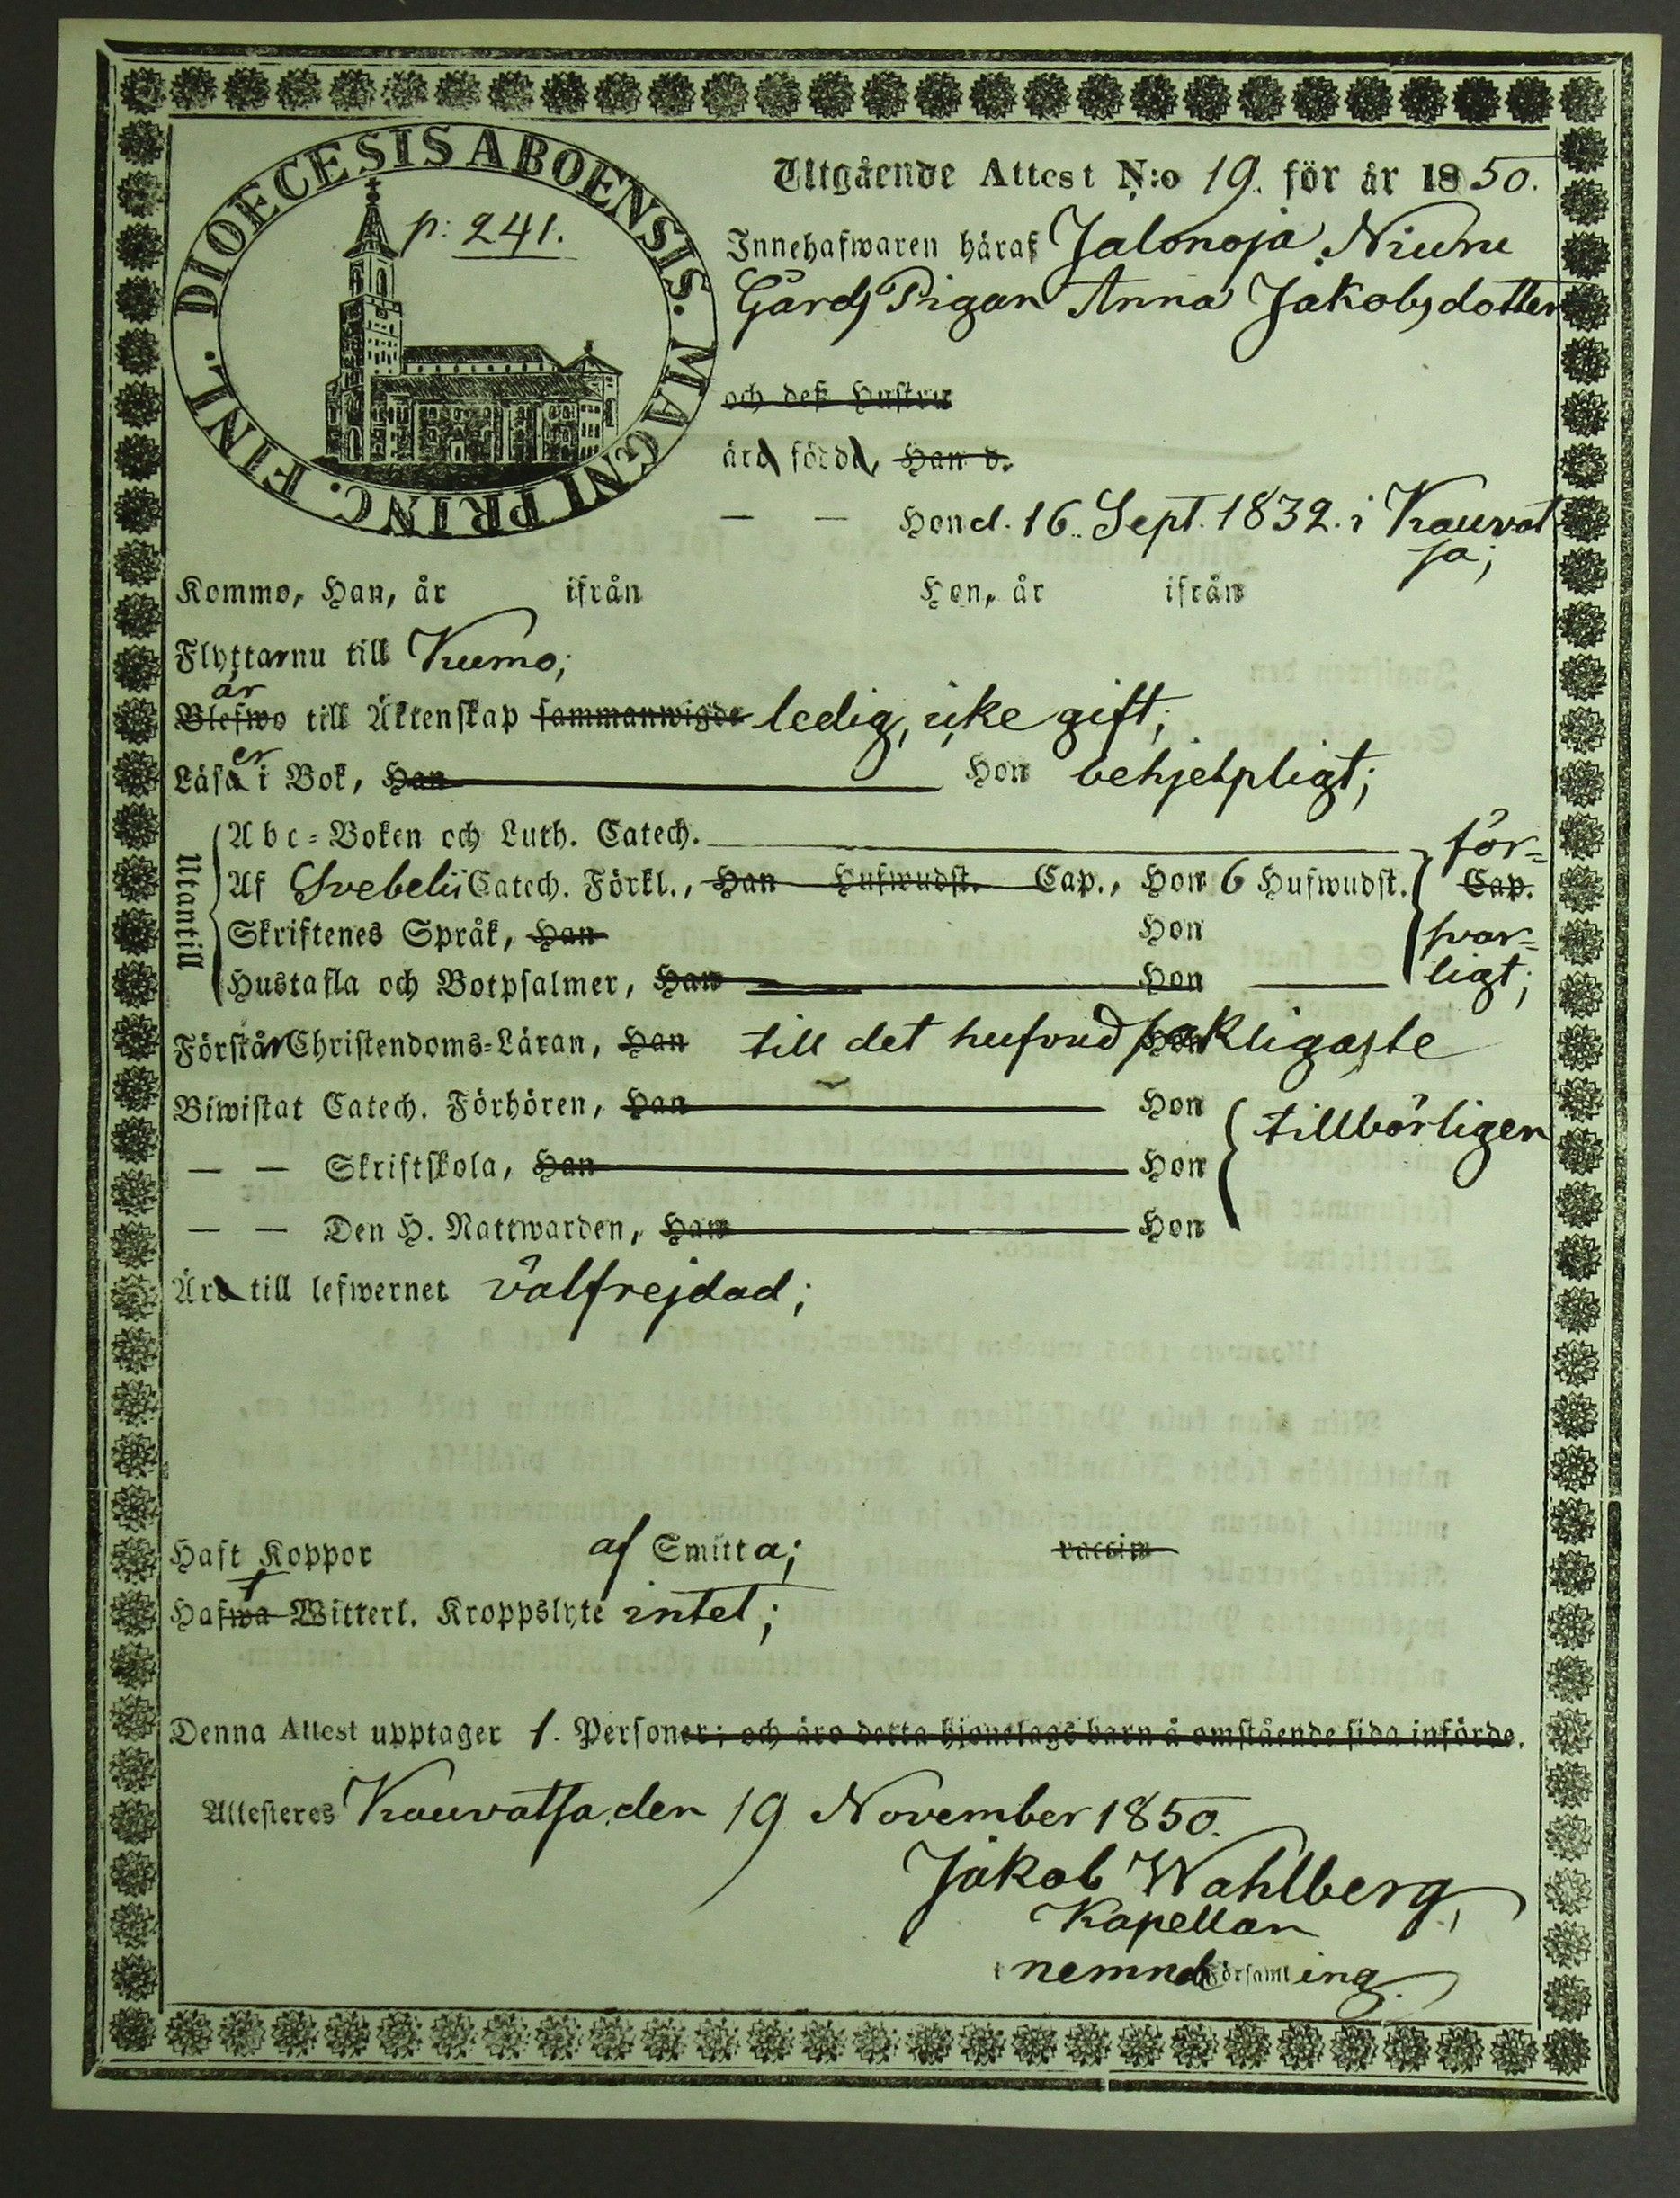 DIOECESIS ABOENSIS. MAGNI PRINC. FINL.
p: 241.
Utgående Attest N:o 19. för år 1850.
Innehafwaren häraf Jalonoja Niuru
Gårds Pigan Anna Jakobsdotter
och deß Hustru
äro födde, Han d.
— — Hon d. 16. Sept. 1832. i Kauvat
sa;
Kommo, Han, år ifrån Hon, år ifrån
Flyttar nu till Kumo;
är
Blefwo till Äktenskap sammanwigde ledig, icke gift;
er
Läsa i Bok, Han Hon behjelpligt;
Utantill
Abc-Boken och Luth. Catech. för-
Af Svebelii Catech. Förkl., Han Hufwudst. Cap., Hon 6 Hufwudst. Cap.
Skriftenes Språk, Han Hon svar-
Hustafla och Botpsalmer, Han Hon ligt;
Förstår Christendoms-Läran, Han till det hufvudsakligaste
Biwistat Catech. Förhören, Han Hon tillbörligen
— — Skriftskola, Han Hon
— — Den H. Nattwarden, Han Hon
Äro till lefwernet välfrejdad;
Haft Koppor af Smitta; vaccin
f
Hafwa Witterl. Kroppslyte intet;
Denna Attest upptager 1. Personer; och äro detta hjonelags barn å omstående sida införde.
Attesteras Kauvatsa, den 19 November 1850.
Jakob Wahlberg,
Kapellan
i nemnd Församling.